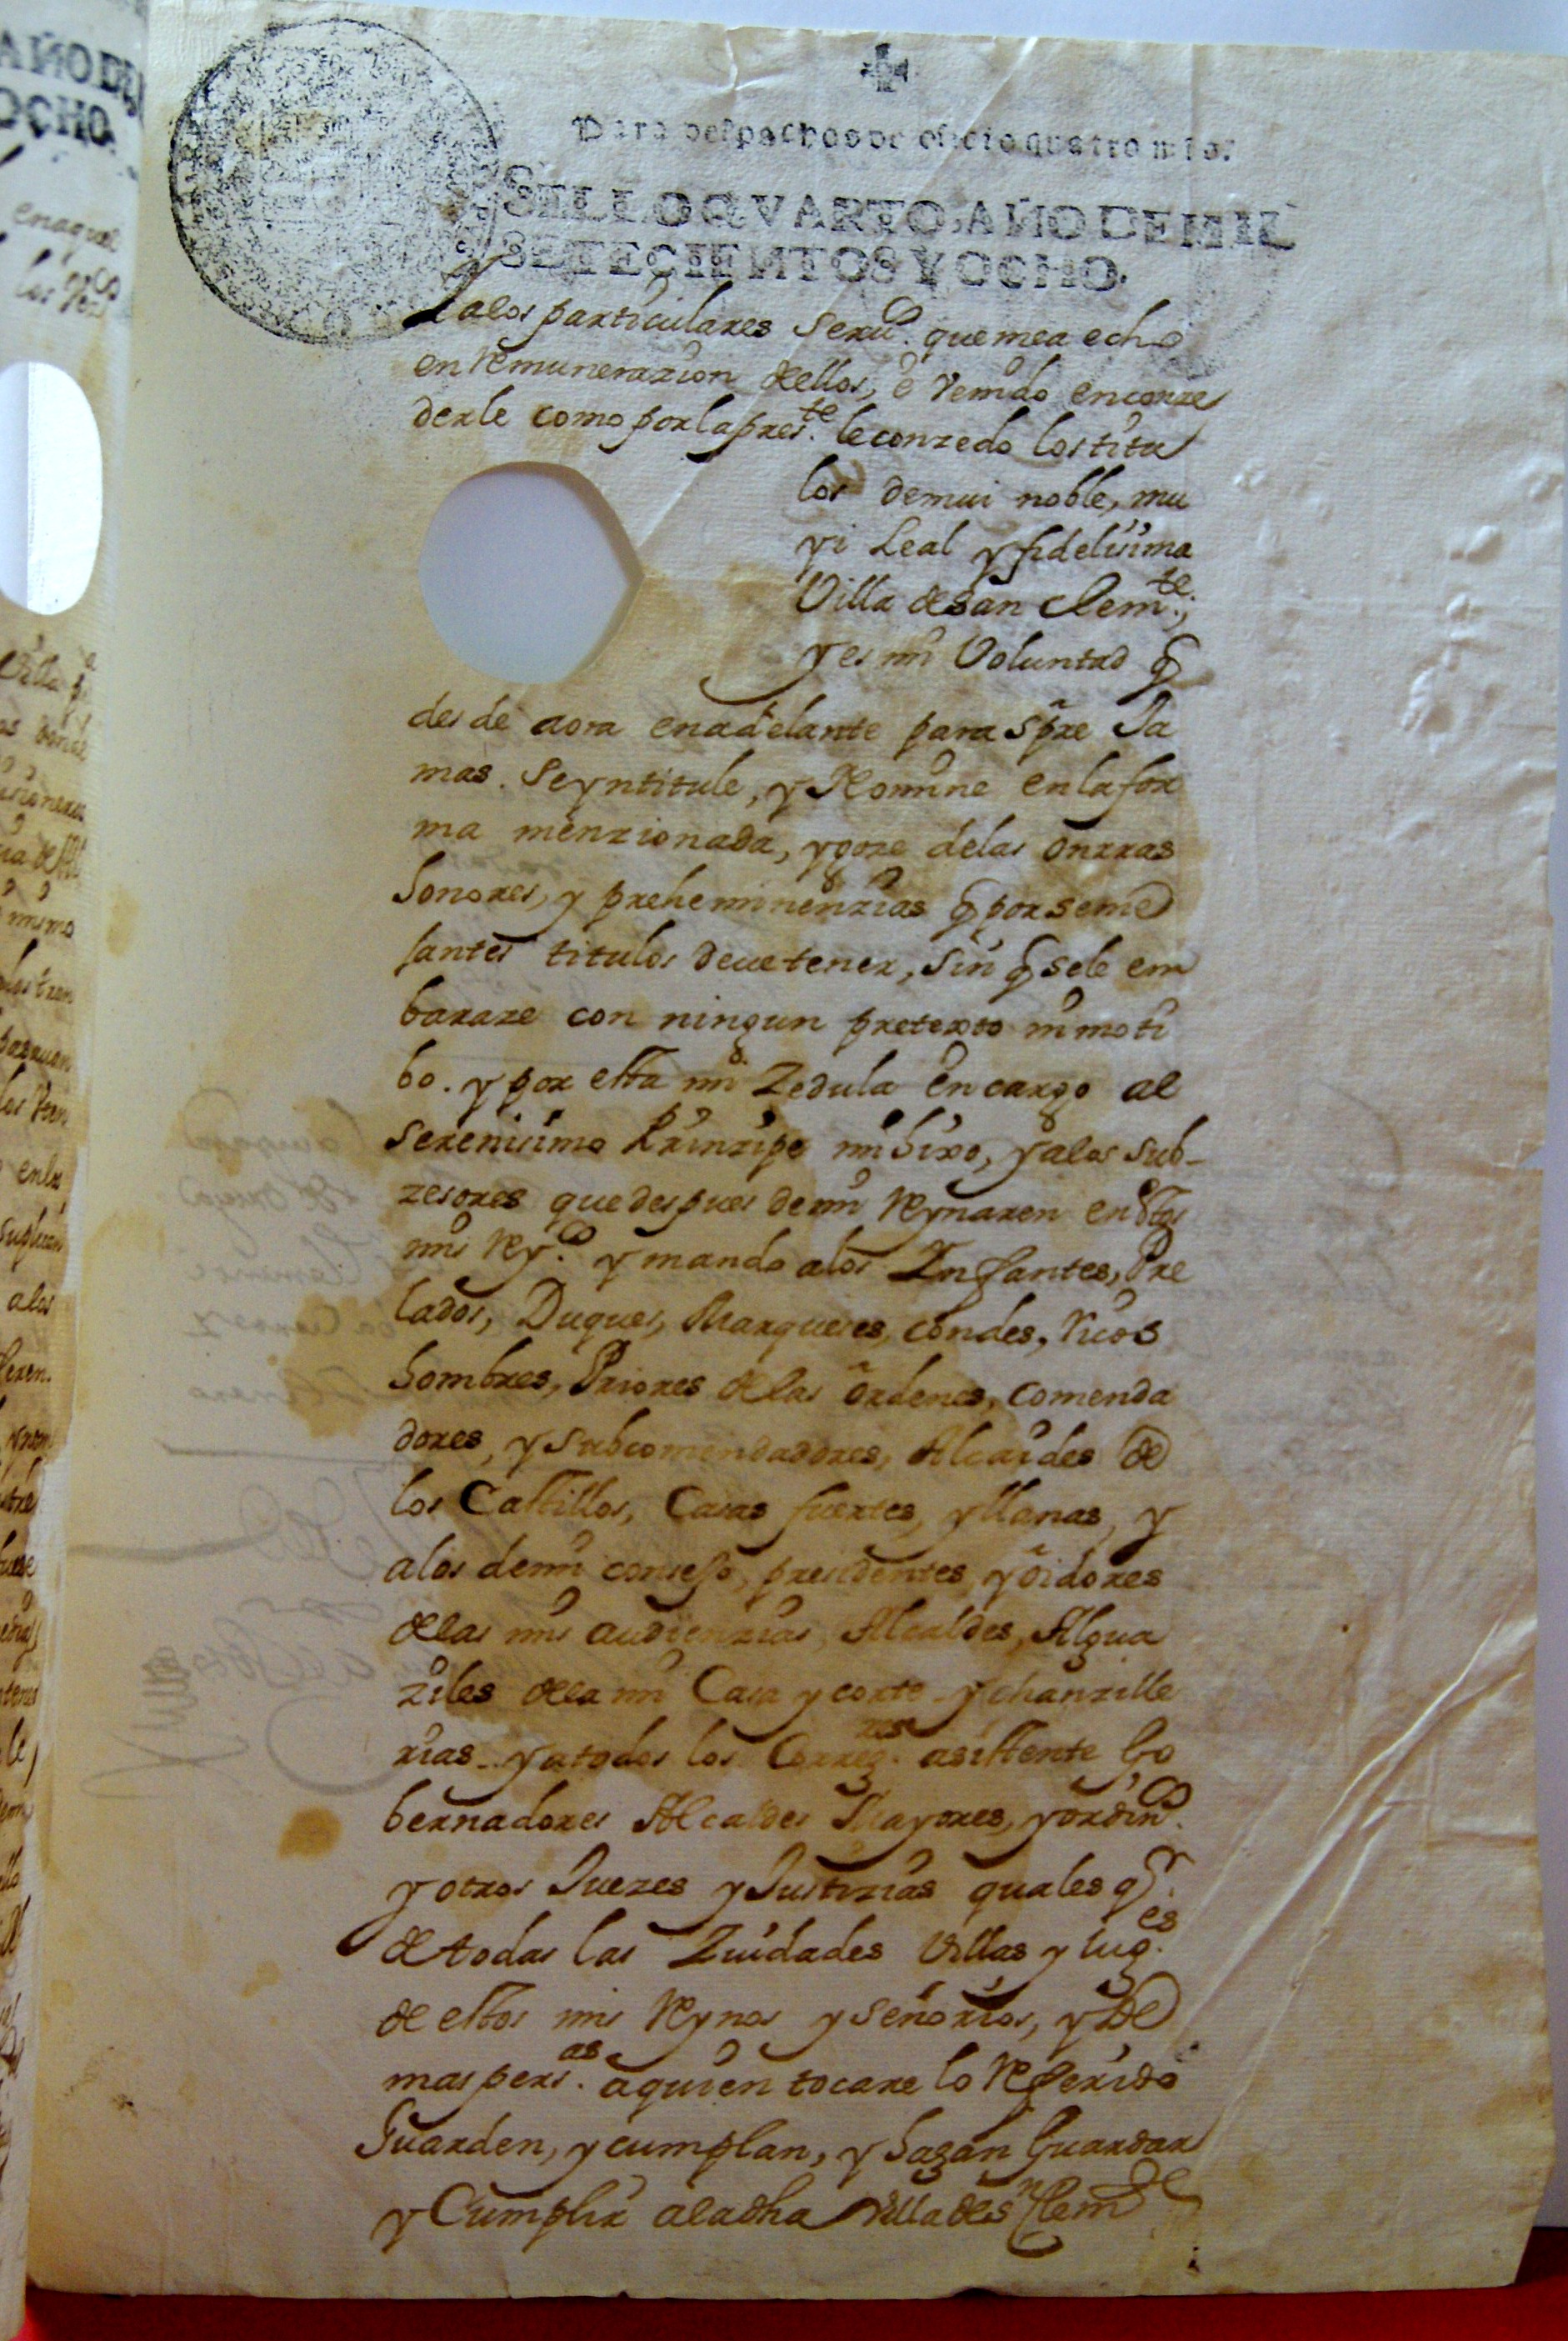 Para despachos de oficio quatro mrs.
SELLO QVARTO, AÑO DE MIL
SETECIENTOS Y OCHO.
Y alos particulares seruos. que mea echo
en Remunerazion dellos, è Venido enconze
derle como porlapreste. leconzedo lostitu
los demui noble, mu
yi Leal y fidelisima
Villa desan Clemte.,
yes mi Voluntad q
desde aora enadelante para spre Ja
mas. Seyntitule, y Nomine enlafor
ma menzionada, ygoze delas onrras
honores, y preheminenzias q porseme
jantes titulos deuetener, sin q sele em
baraze con ningun pretexto ni moti
bo. y por esta mi Zedula encargo al
serenisimo Prinzipe mi hixo, yalos sub-
zesores que despues demi Reynaren enestos
mis Reynos. y mando alos Infantes, Pre
lados, Duques, Marqueses, condes, Ricos
hombres, Priores delas ordenes, comenda
dores, y subcomendadores, Alcaides de
los Castillos, Casas fuertes, yllanas, y
alos demi consejo, presidentes, yoidores
delas mis audienzias, Alcaldes, Algua
ziles dela mi Casa y corte y chanzille
rias. yatodos los Correg.res asistente Go
bernadores Alcaldes Mayores, yordinos.
y otros Juezes yJustizias quales qr.
detodas las Ziudades Villas y lug.es
de estos mis Reynos y señorios, y De
mas pers.as aquien tocare lo Referido
Guarden, ycumplan, y hagan Guardar
y Cumplir aladha Villa deSn Clemte
AÑO DE
OCHO.
enaquel
mismo
enla
alos